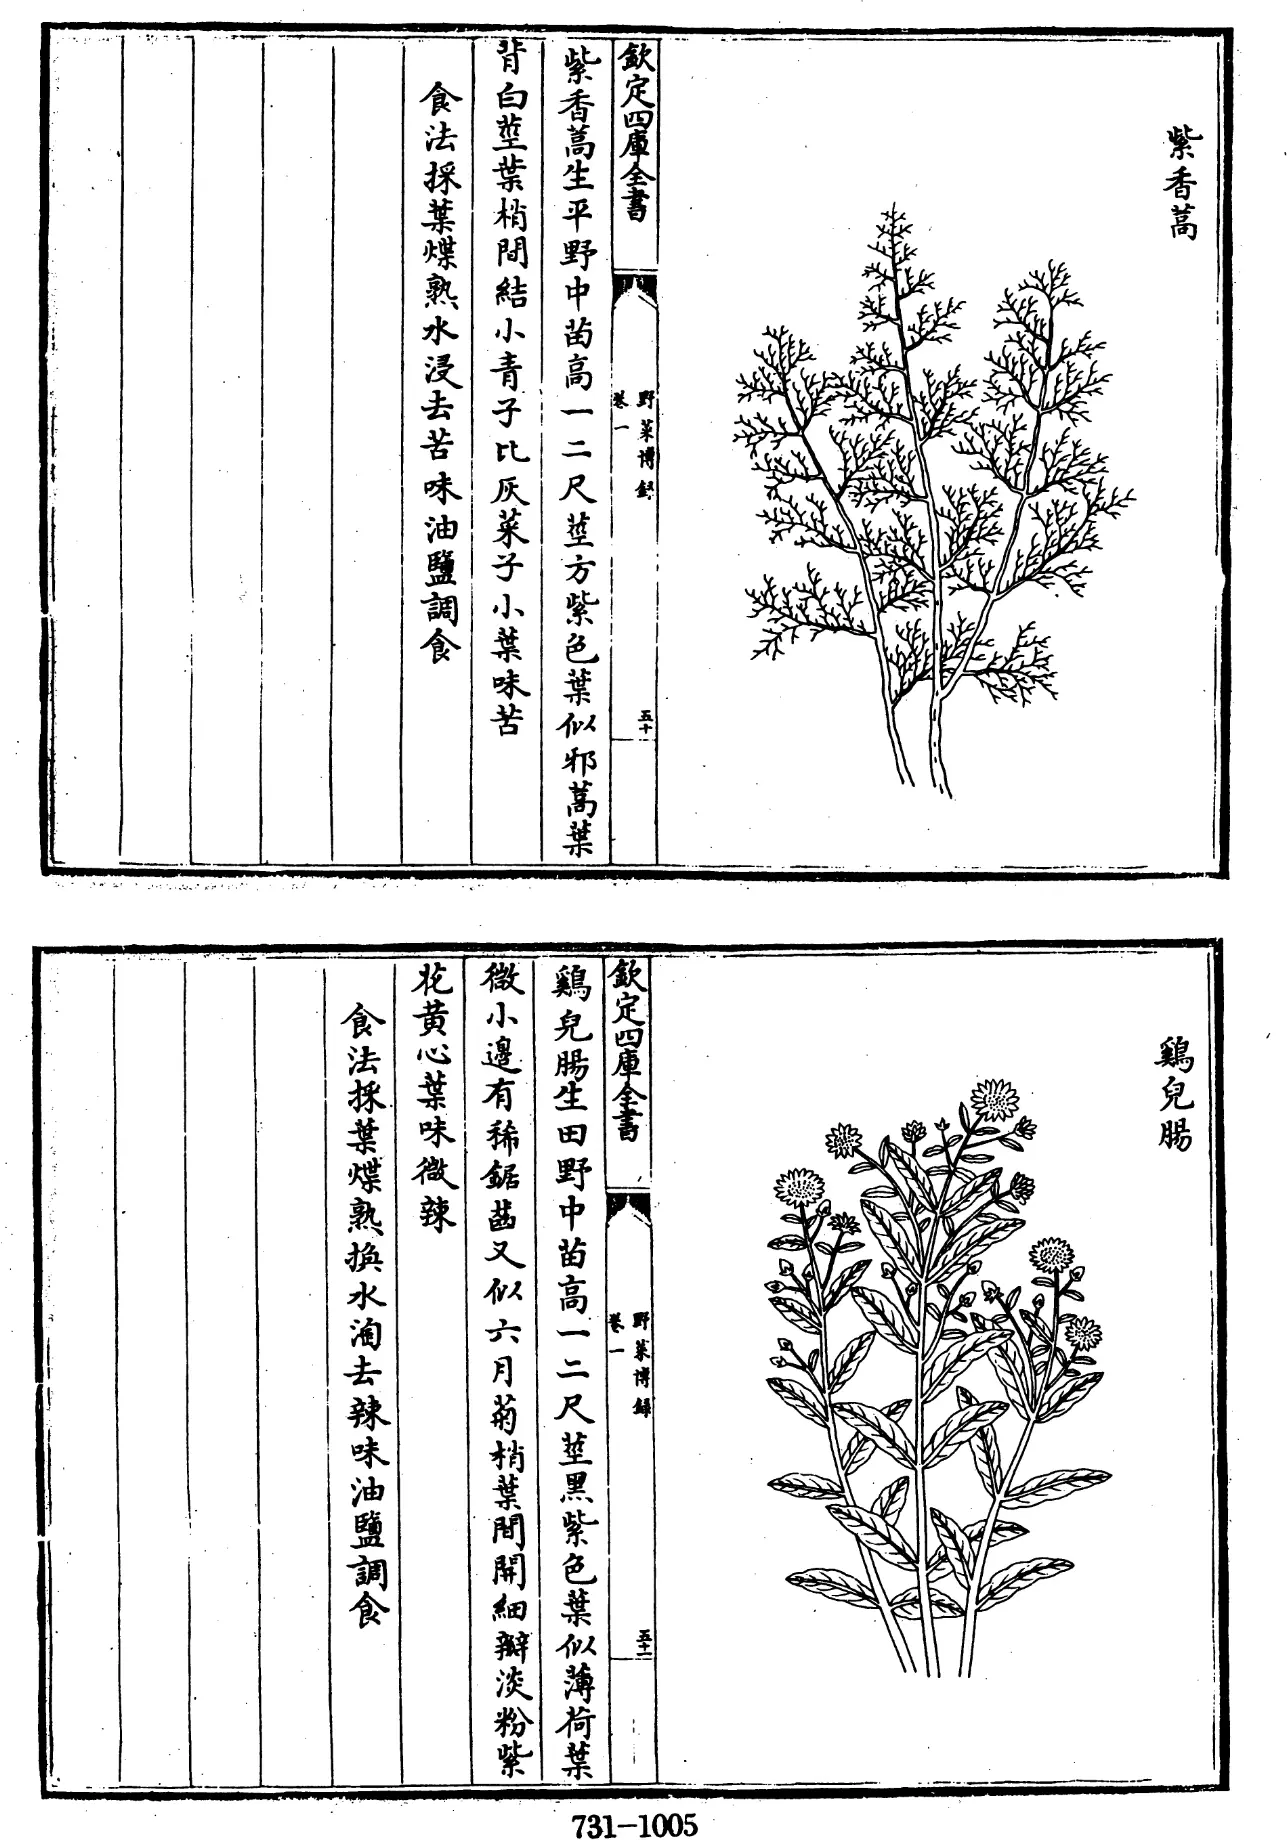 紫香蒿
欽定四庫全書
野菜博録
卷一
五十
紫香蒿生平野中苗高一二尺莖方紫色葉似邪蒿葉
背白莖葉梢間結小青子比灰菜子小葉味苦
食法採葉煠熟水浸去苦味油鹽調食
鷄兒腸
欽定四庫全書
野菜博録
卷一
五十一
鷄兒腸生田野中苗高一二尺莖黑紫色葉似薄荷葉
微小邊有稀鋸齒又似六月菊梢葉間開細瓣淡粉紫
花黃心葉味微辣
食法採葉煠熟換水淘去辣味油鹽調食
731-1005